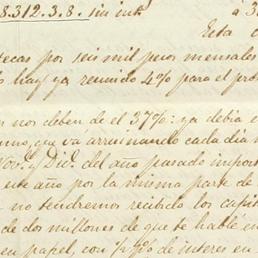 8.312.3.8. sin int.s á 3
Esta
tecas por seis mil pesos mensales
hay ya reunido 4% para el pro
n nos deben de el 37%: ya debia e
no, que vá arruinando cada dia
Nov.e y Dic.e del año pasado import
este año por la misma parte de
no tendremos recibido los capit
de dos millones de que te hablé en
en papel, con ½ % de interes en